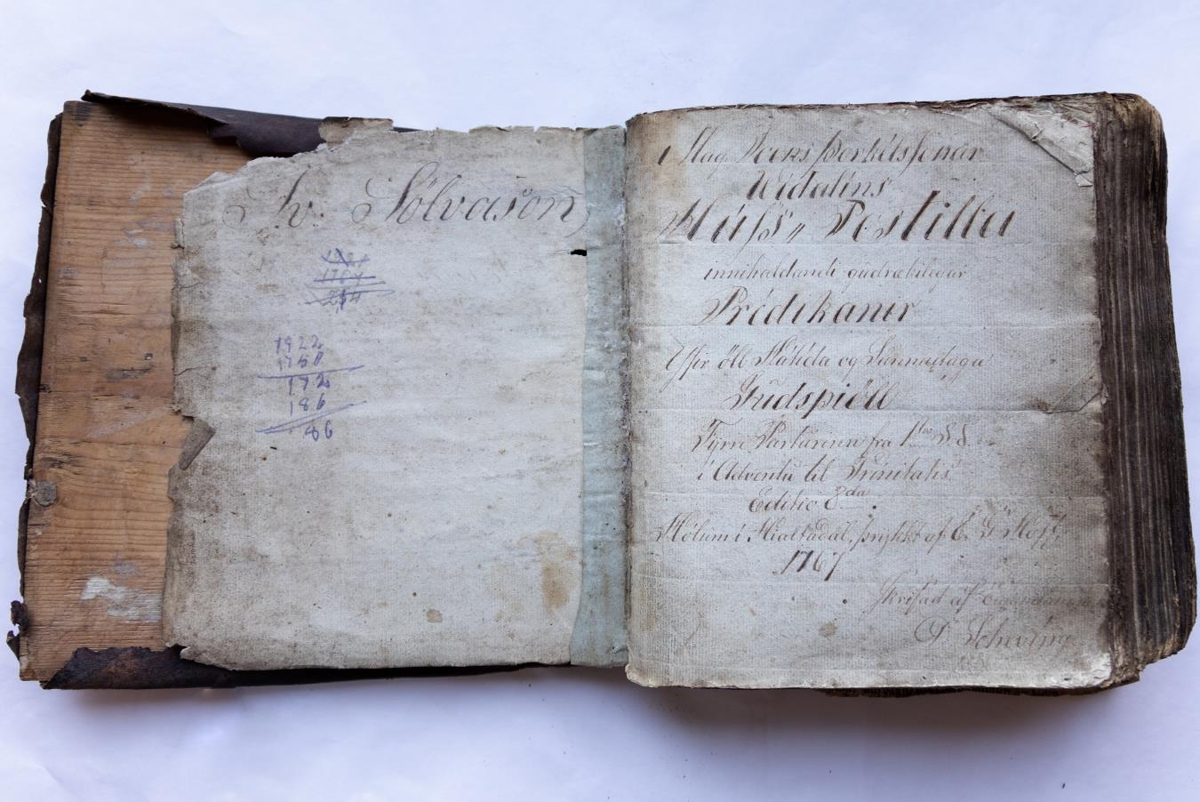 Sv. Sölvason
1764
1922
172
186
86
Mag. Joens Þorkelssonar
Widalins
Húss Postilla
innihaldandi gudrækilegar
Prédikaner
Yfer öll Hátida og Sunnudaga
Gudspiöll
Fyrre Parturenn fra 1sta S. S.
i Adventu til Trinitatis
Editio 8da
Hólum i Hialtadal, þrykkt af E. G. Hoff,
1767
Skrifad af
Scheving